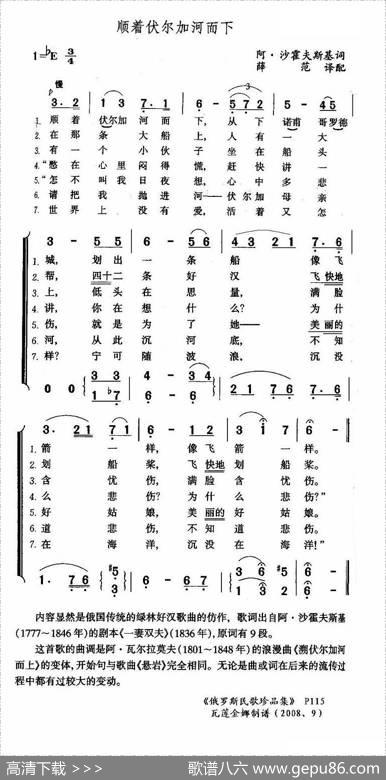 顺着伏尔加河而下
1=♭E 3/4
阿·沙霍夫斯基词
薛 范 译配
慢
3·2 1 3 7·1 6 - 5 7 2 5 - 4 5
1. 顺着伏尔加河而下,从下诺甫哥罗德
2. 在那条大船上,人有一大
3. 有一个小伙子坐在船头
4.“愁在心里闷得慌,赶快讲一
5.“怎不叫我日夜想,心中多悲
6. 请把我抛进河——伏尔加母亲
7. 世界上没有爱,活着又怎
3 - 5 5 6 - 5 6 4 3 2 1 7·6
1. 城,划出一条船 像飞
2. 帮,四十二条好汉 飞快地
3. 上,低头在思量,满脸
4. 讲,你在想什么?为什
5. 伤,就是为了她——美丽的
6. 河,从此沉河底,不知
7. 样?宁可随波浪,沉没
3· 2 1 7·1 6 - 6 7 3 1 7 6
1. 箭一样,像飞箭一样。
2. 划船桨,飞快地划船桨。
3. 含忧伤,满脸含忧伤。
4. 么悲伤?为什么悲伤?”
5. 好姑娘,美丽的好姑娘。
6. 道悲伤,不知道悲伤。
7. 在海洋,沉没在海洋!”
内容显然是俄国传统的绿林好汉歌曲的仿作,歌词出自阿·沙霍夫斯基
(1777~1846年)的剧本《一妻双夫》(1836年),原词有9段。
这首歌的曲调是阿·瓦尔拉莫夫(1801~1848年)的浪漫曲《溯伏尔加河
而上》的变体,开始句与歌曲《悬岩》完全相同。无论是曲或词在后来的流传过
程中都有过较大的变动。
《俄罗斯民歌珍品集》 P115
瓦莲金娜制谱(2008、9)
高清下载 >>> 歌谱八六 www.gepu86.com